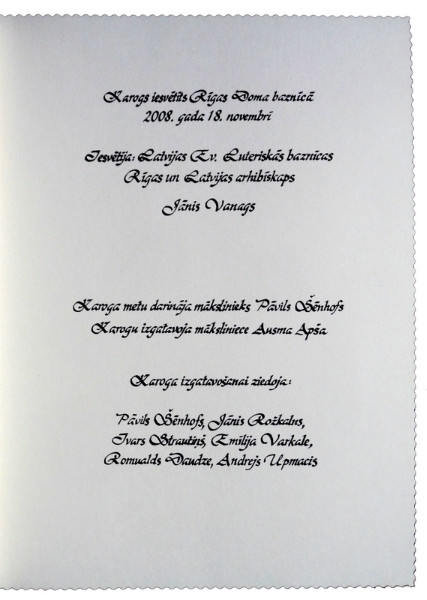 Karogs iesvētīts Rīgas Doma baznīcā
2008. gada 18. novembrī
Iesvētīja: Latvijas Ev. Luteriskās baznīcas
Rīgas un Latvijas arhibīskaps
Jānis Vanags
Karoga metu darināja mākslinieks Pāvils Šēnhofs
Karogu izgatavoja māksliniece Ausma Apša
Karoga izgatavošanai ziedoja:
Pāvils Šēnhofs, Jānis Rožkalns,
Ivars Strautiņš, Emīlija Varkale,
Romualds Daudze, Andrejs Upmacis